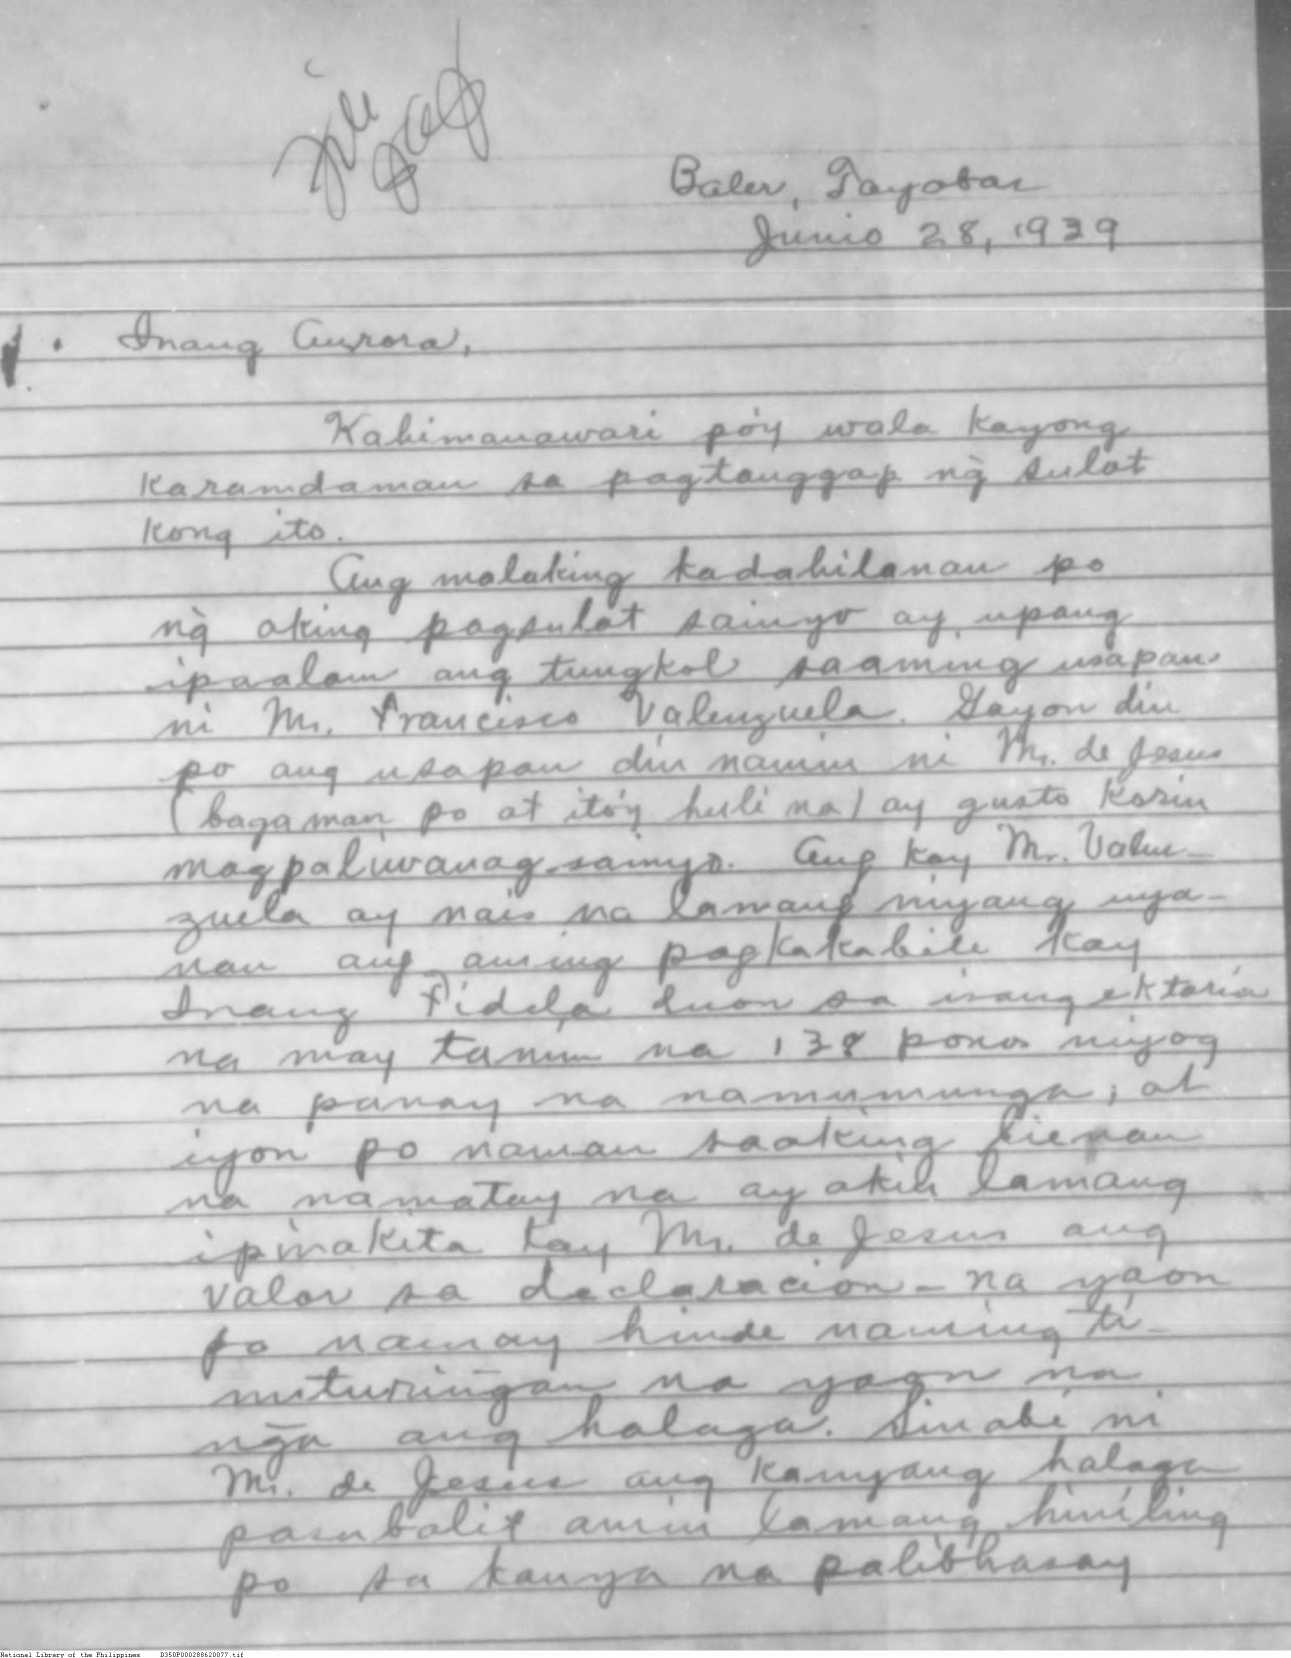 file
Baler, Tayabas
Junio 28, 1939
Inang Aurora,
Kahimanawari po'y wala kayong
karamdaman sa pagtanggap ng̃ sulat
kong ito.
Ang malaking kadahilanan po
ng̃ aking pagsulat sainyo ay upang
ipaalam ang tungkol saaming usapan
ni Mr. Francisco Valenzuela. Gayon din
po ang usapan din namin ni Mr. de Jesus
(bagaman po at ito'y huli na) ay gusto korin
magpaliwanag sainyo. Ang kay Mr. Valen-
zuela ay nais na lamang niyang uya-
nan ang aming pagkakabili kay
Inang Fidela duon sa isang ektaria
na may tanim na 138 ponos niyog
na panay na namumunga; at
iyon po naman saaking bienan
na namatay na ay akin lamang
ipinakita kay Mr. de Jesus ang
valor sa declaracion - na yaon
po namay hinde naming ti-
nuturing̃an na yaon na
ng̃a ang halaga. Sinabi ni
Mr. de Jesus ang kanyang halaga
pasubalit amin lamang hiniling
po sa kanya na palibhasay
National Library of the Philippines D350P000288620077.tif